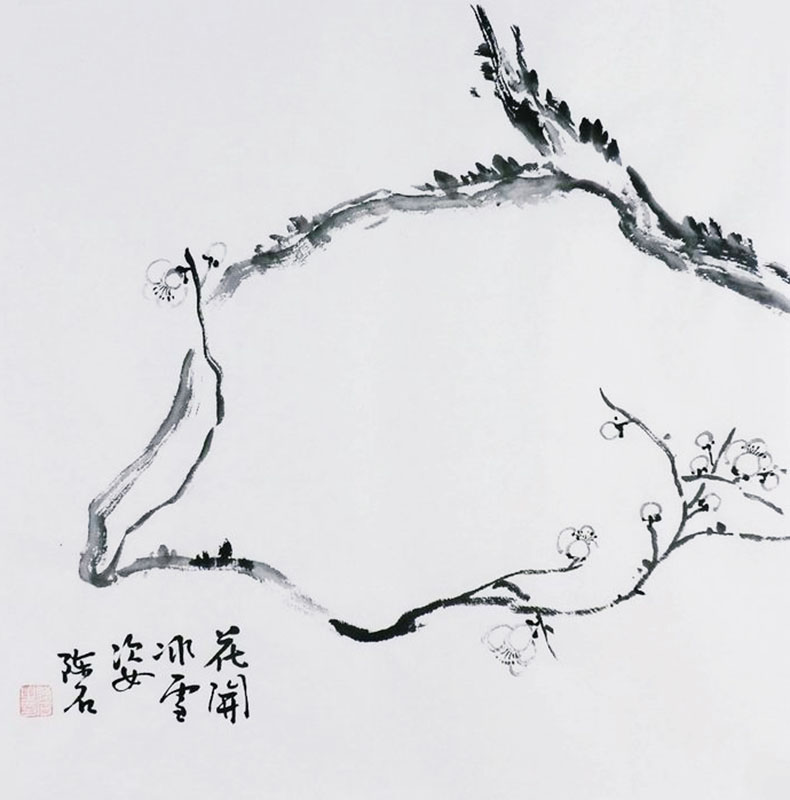 花開
冰雪
姿
陈石